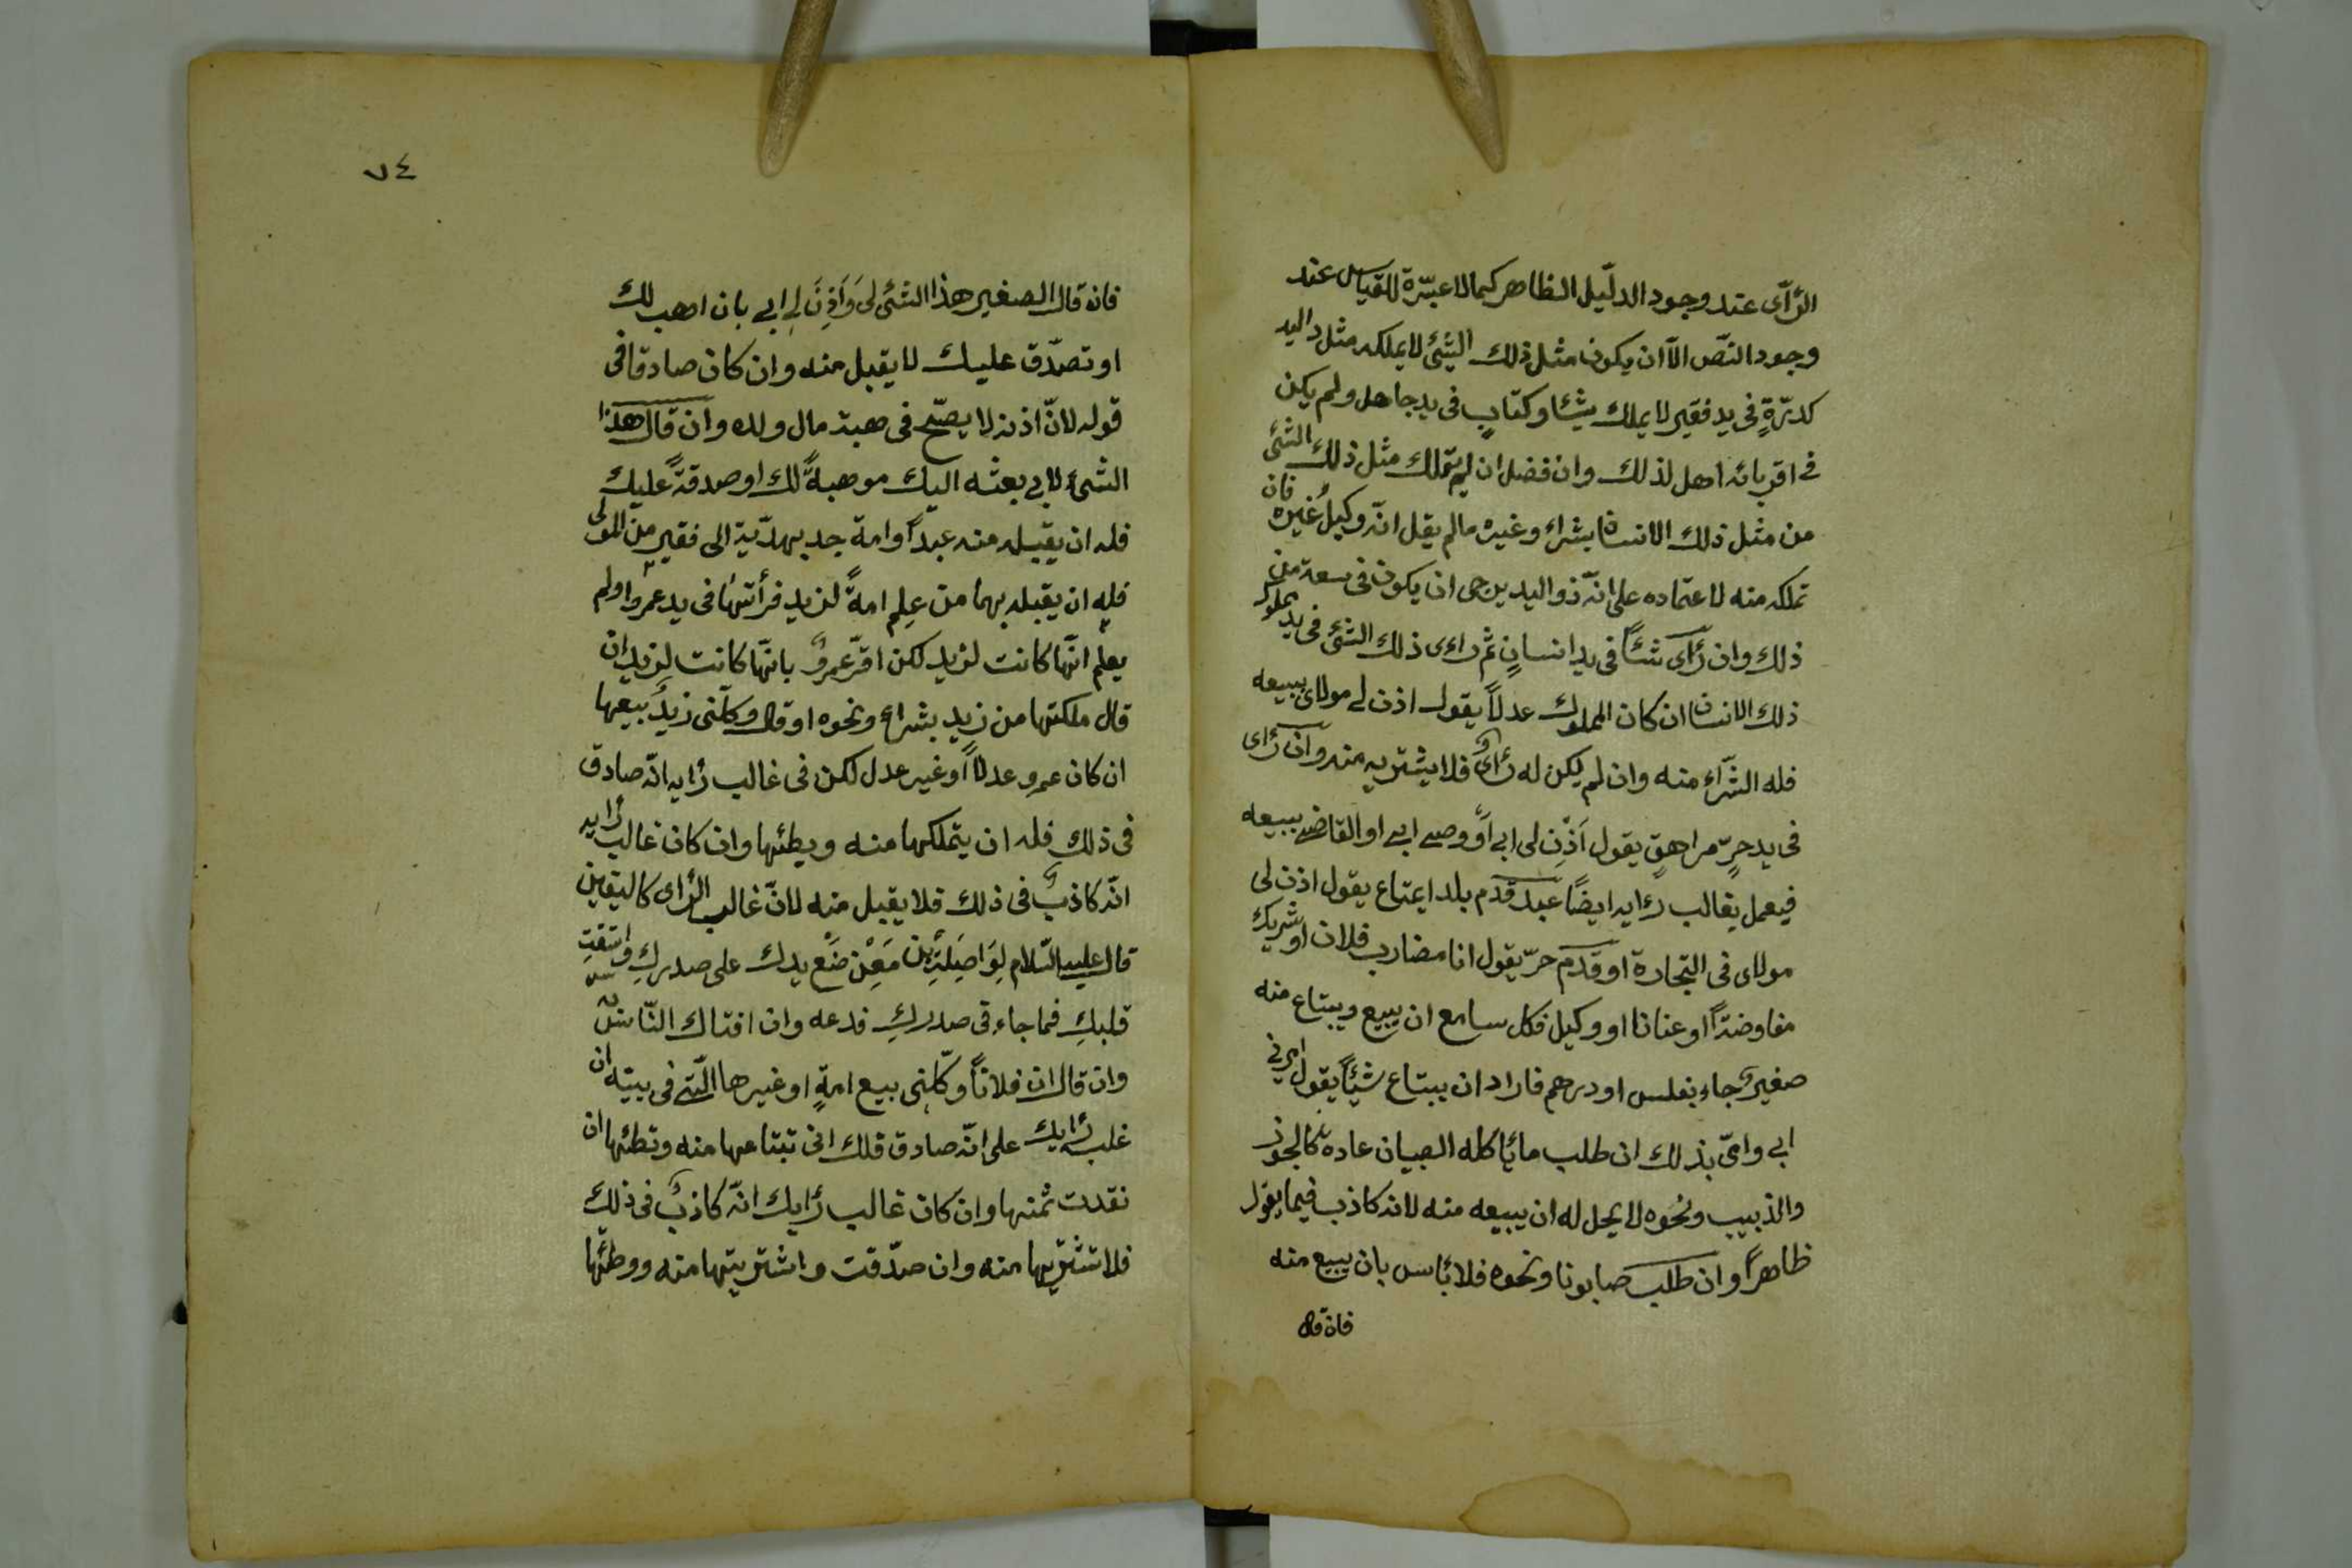 الرّأى عند وجود الدلّيل الظاهر كما لا عبّرة للقياس عند
وجود النصّ الاّ ان يكون مثل ذلك الشئ لا يملكه مثل ذاليد
كدرّةٍ فى يد فقير لا يملك شيئا وكتابٍ فى يد جاهل ولم يكن
فى اقربائه اهل لذلك وان فضل ان لم يتملك مثل ذلك الشئ
من مثل ذلك الانسان بشراء وغيره مالم يقل انّه وكيلُ غيره فان
تملكه منه لاعتماده على انّه ذو اليد يرجى ان يكون فى سعة من
ذلك وان رأى شئًا فى يد انسانٍ ثم راءى ذلك الشئ فى يد مملوك
ذلك الانسان ان كان المملوك عدلاً يقول اذن لى مولاى ببيعه
فله الشّراء منه وان لم يكن له رأىٌ فلا يشتريه منه وان رأى
فى يد حرٍّ مراهقٍ يقول اَذِن لى ابى اَو وصى ابى او القاضى ببيعه
فيعمل بغالب رءايه ايضًا عبد قدم بلدا بمتاع يقول اذن لى
مولاى فى التجارة او قدم حرّ يقول انا مضارب فلان او شريك
مفاوضةً او عنانا او وكيل فكل سامع ان يبيع ويبتاع منه
صغيرٌ جاء بفلس او درهم فاراد ان يبتاع شيئًا يقول امرنى
ابى وامّى بذلك ان طلب ما يأكله الصبيان عادة كالجوز
والذبيب ونحوه لا يحل له ان يبيعه منه لانه كاذب فيما يقول
ظاهراً وان طلب صابونا ونحوه فلا بأس بان يبيع منه
فان قال
٧٤
فان قال الصغير هذا الشئ لى وَاَذِنَ لى ابى بان اهب لك
او تصدّق عليك لا يقبل منه وان كان صادقا فى
قوله لانّ اذنه لا يصّح فى هبة مال ولده وان قال هذا
الشئ لابى بعثه اليك موهبةً لك او صدقةً عليك
فله ان يقبله منه عبداً او امة جد بهدّية الى فقير من المولى
فله ان يقبله بهما من عِلم امةً لزيد فرأتها فى يد عمرو او لم
يعلم انّها كانت لزيد لكن اقرّ عمروٌ بانّها كانت لزيد ان
قال ملكتها من زيد بشراء ونحوه او قال وكلّنى زيدٌ ببيعها
ان كان عمرو عدلاً او غير عدل لكن فى غالب رأيه انّه صادق
فى ذلك فله ان يتملكها منه ويطئها وان كان غالب رأيه
انّه كاذبٌ فى ذلك فلا يقبل منه لانّ غالب الرّاى كاليقين
قال عليه السّلام لِوَاصِبَة بن مَعْن ضَعْ يدك على صدرك واستفتِ
قلبكِ فما جاء فى صدركِ فدعه وان افتاك النّاس
وان قال ان فلاناً وكّلنى ببيع امةٍ او غيرها الّتى فى بيته ان
غلب رايك على انّه صادق فلك ان تبتاعها منه وتطئها ان
نقدت ثمنها وان كان غالب رأيك انّه كاذبٌ فى ذلك
فلا تشتريها منه وان صدّقت واشتريتها منه ووطئها